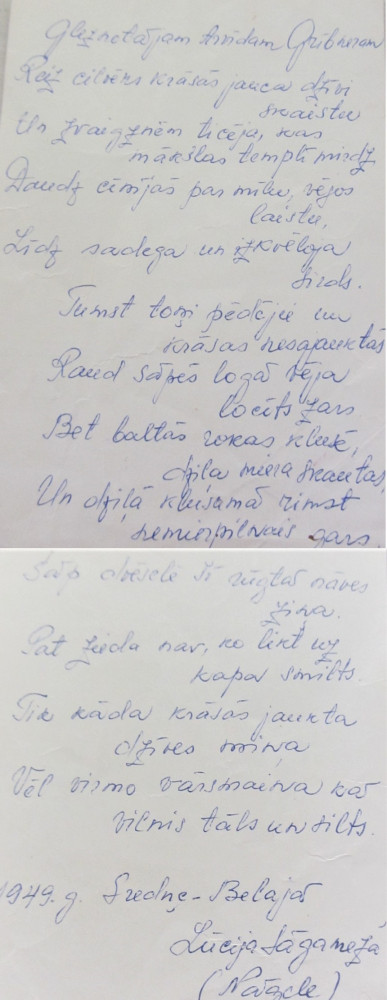 Gleznotājam Arvīdam Grīb
Reiz cilvēks krāsās jauca dzīvi
skaistu
Un zvaigznēm ticēja, kas
mākslas templī mirdz
Daudz cīnījās par mīlu, vējos
laistu,
Līdz sadega un izkvēloja
sirds.
Tumst toņi pēdējie un
krāsas nesajauktās
Raud sāpēs logā vēja
locīts zars
Bet baltās rokas klusē,
dziļa miera skautas
Un dziļā klusumā rimst
nemierpilnais gars.
Sāp dvēselē šī rūgtā nāves
ziņa.
Pat zieda nav, ko likt uz
kapa smilts.
Tik kāda krāsās jaukta
dzīves miņa
Vēl virmo vārsmaiņā kā
vilnis tāls un silts.
1949.g. Sredņe-Belajā
Lūcija Sāgameža
(Nāgele)